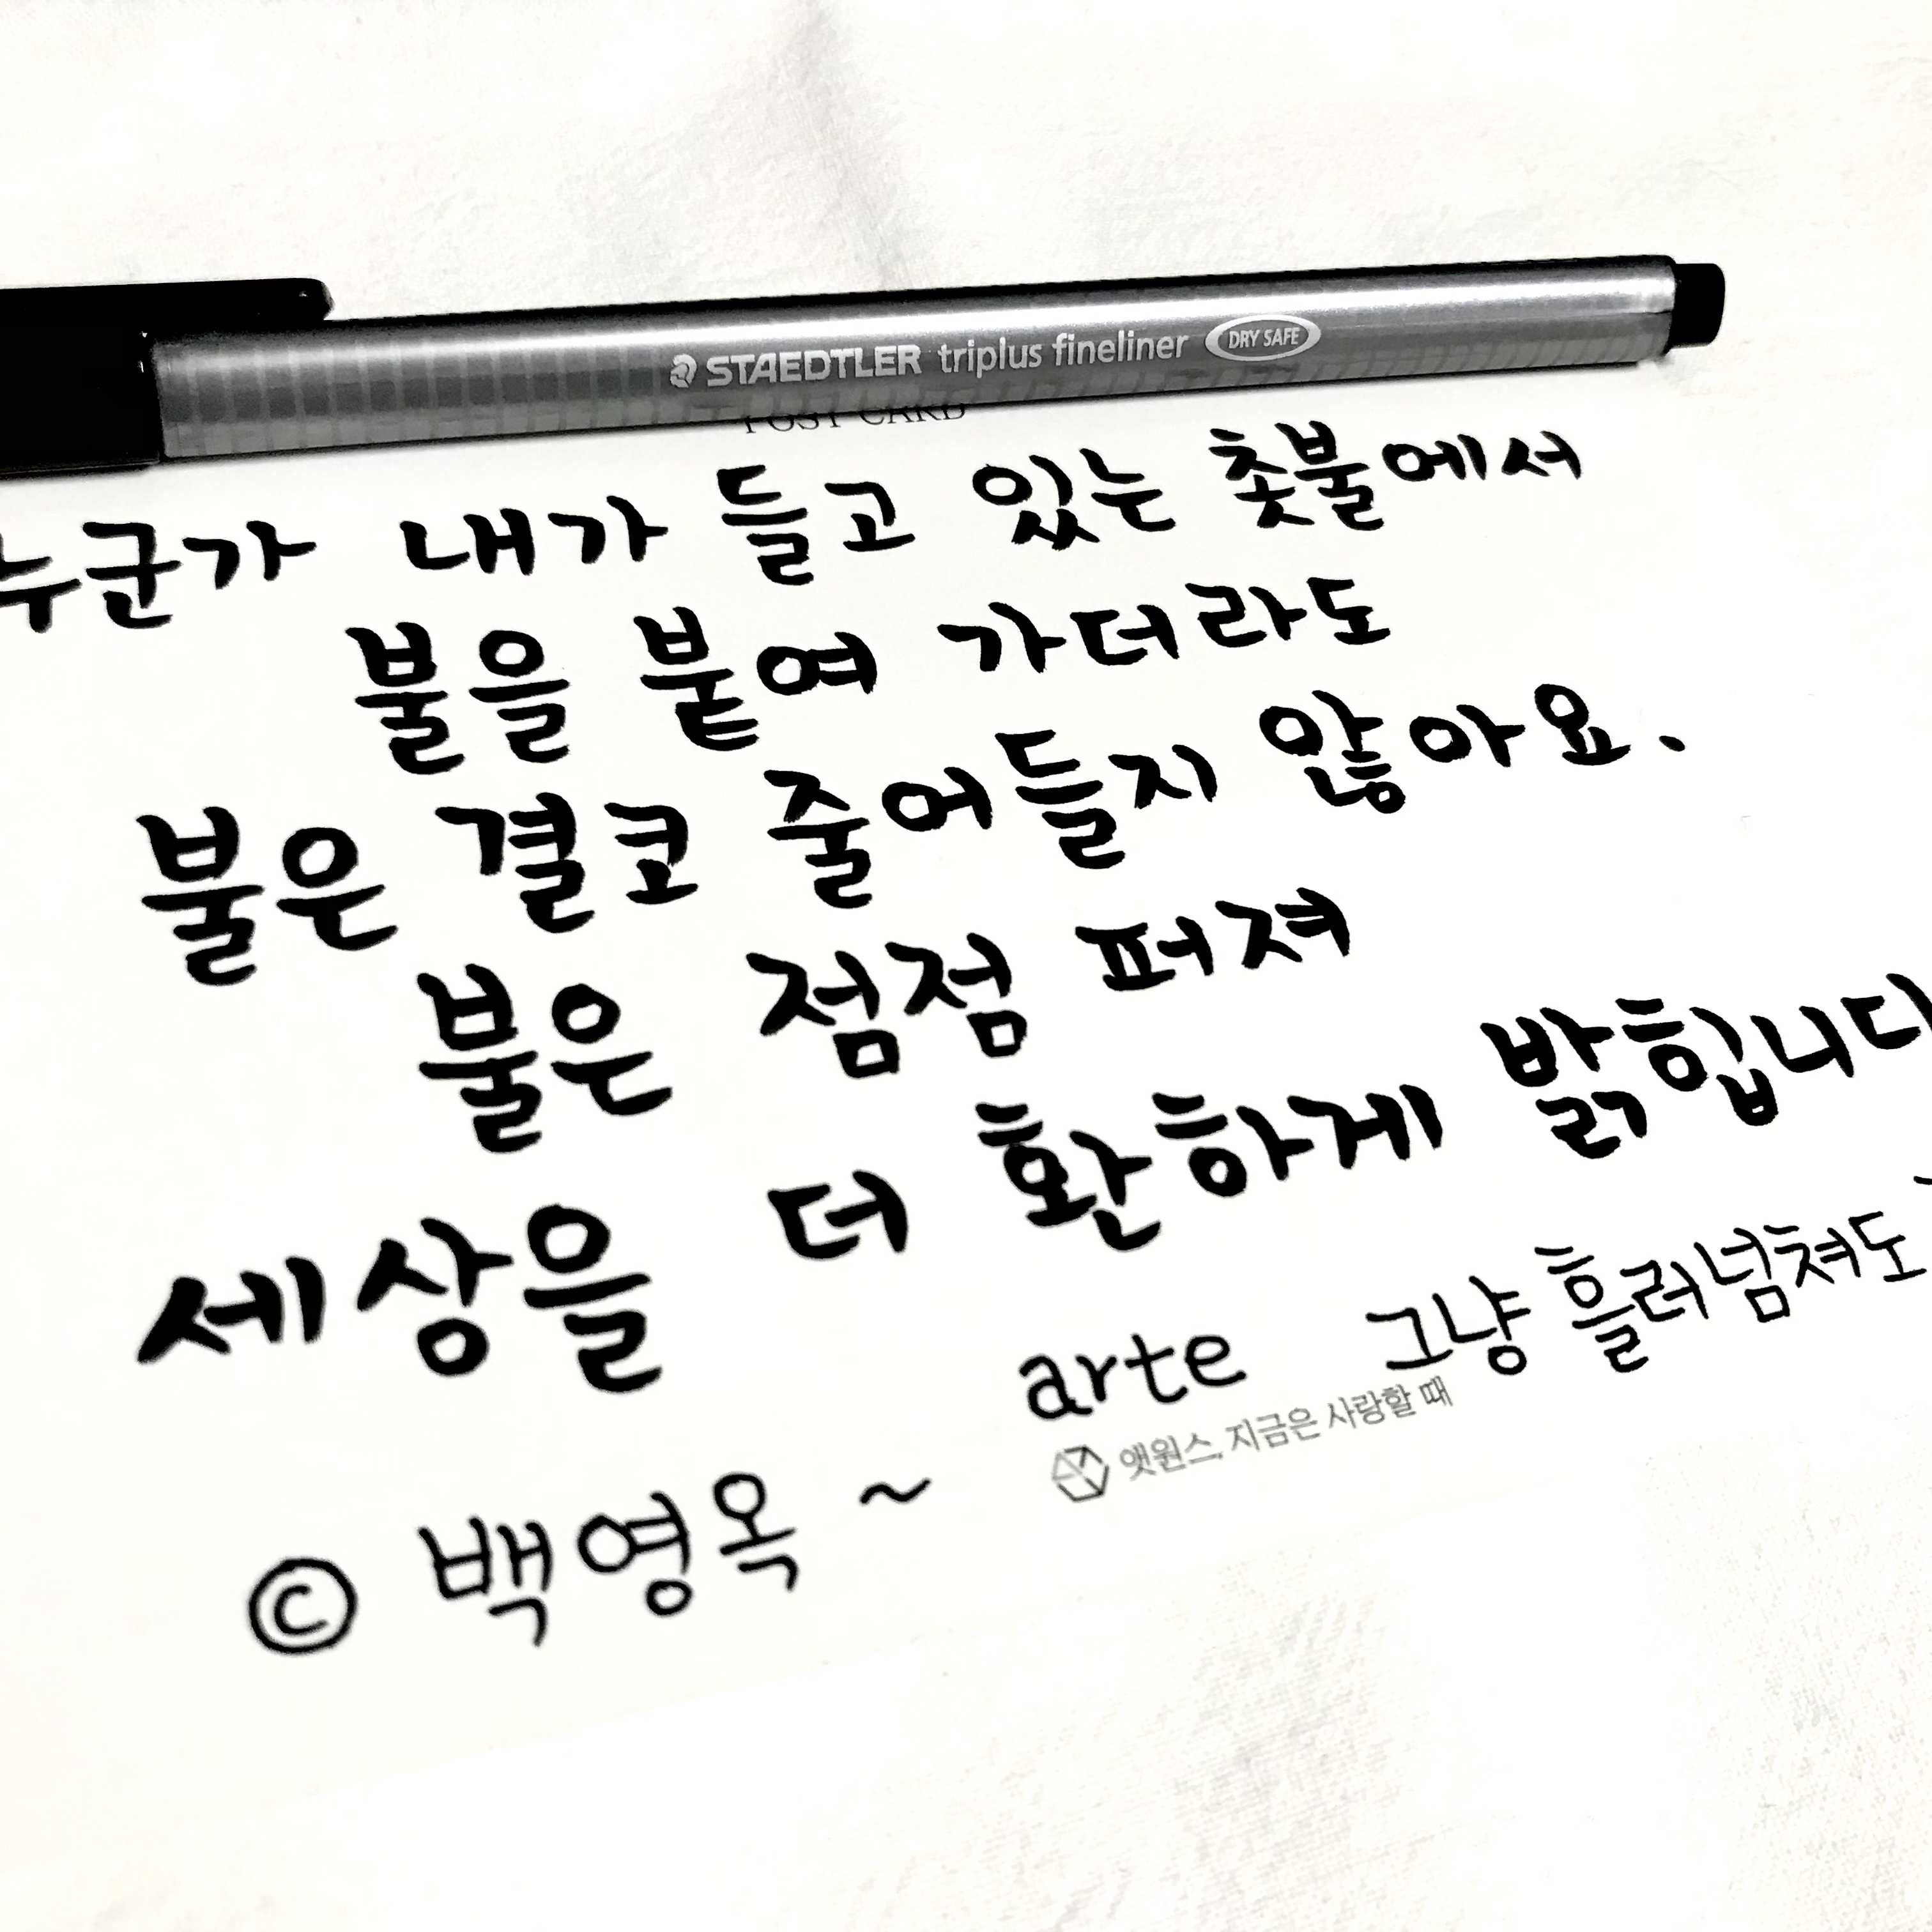 STAEDTLER triplus fineliner DRY SAFE
POST CARD
누군가 내가 들고 있는 촛불에서
불을 붙여 가더라도
불은 결코 줄어들지 않아요.
불은 점점 퍼져
세상을 더 환하게 밝힙니다
arte 그냥 흘러넘쳐도
앳원스, 지금은 사랑할 때
© 백영옥 ~